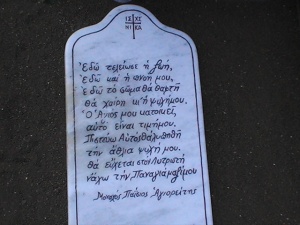 ΙΣ ΧΣ
ΝΙ ΚΑ
Ἐδῶ τελείωσε ἡ ζωή,
Ἐδῶ καί ἡ πνοή μου,
Ἐδῶ τό σῶμα θά θαφτῆ
θά χαίρη κι' ἡ ψυχή μου.
Ὁ Ἅγιός μου κατοικεῖ,
αὐτό εἶναι τιμή μου.
Πιστεύω Αὐτός θά λυπηθῆ
τήν ἄθλια ψυχή μου.
Θά εὔχεται στόν Λυτρωτή
νἄχω τήν Παναγιά μαζί μου.
Μοναχός Παΐσιος Ἁγιορείτης